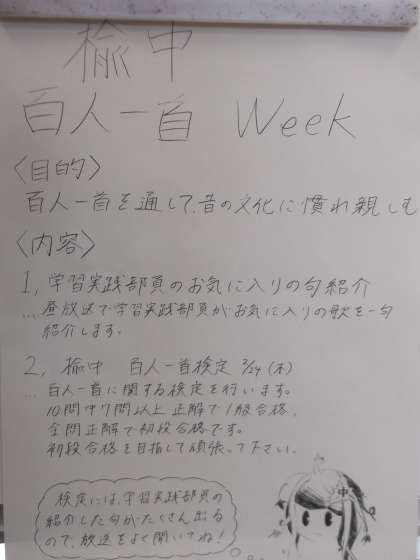 楡中
百人一首 Week
〈目的〉
百人一首を通して、昔の文化に慣れ親しも
〈内容〉
1, 学習実践部員のお気に入りの句紹介
… 昼放送で学習実践部員がお気に入りの歌を一句
紹介します。
2, 楡中 百人一首検定 2/24(木)
… 百人一首に関する検定を行います。
10問中7問以上正解で1級合格、
全問正解で初段合格です。
初段合格を目指して頑張って下さい。
検定には、学習実践部員の
紹介した句がたくさん出る
ので、放送をよく聞いてね!
中